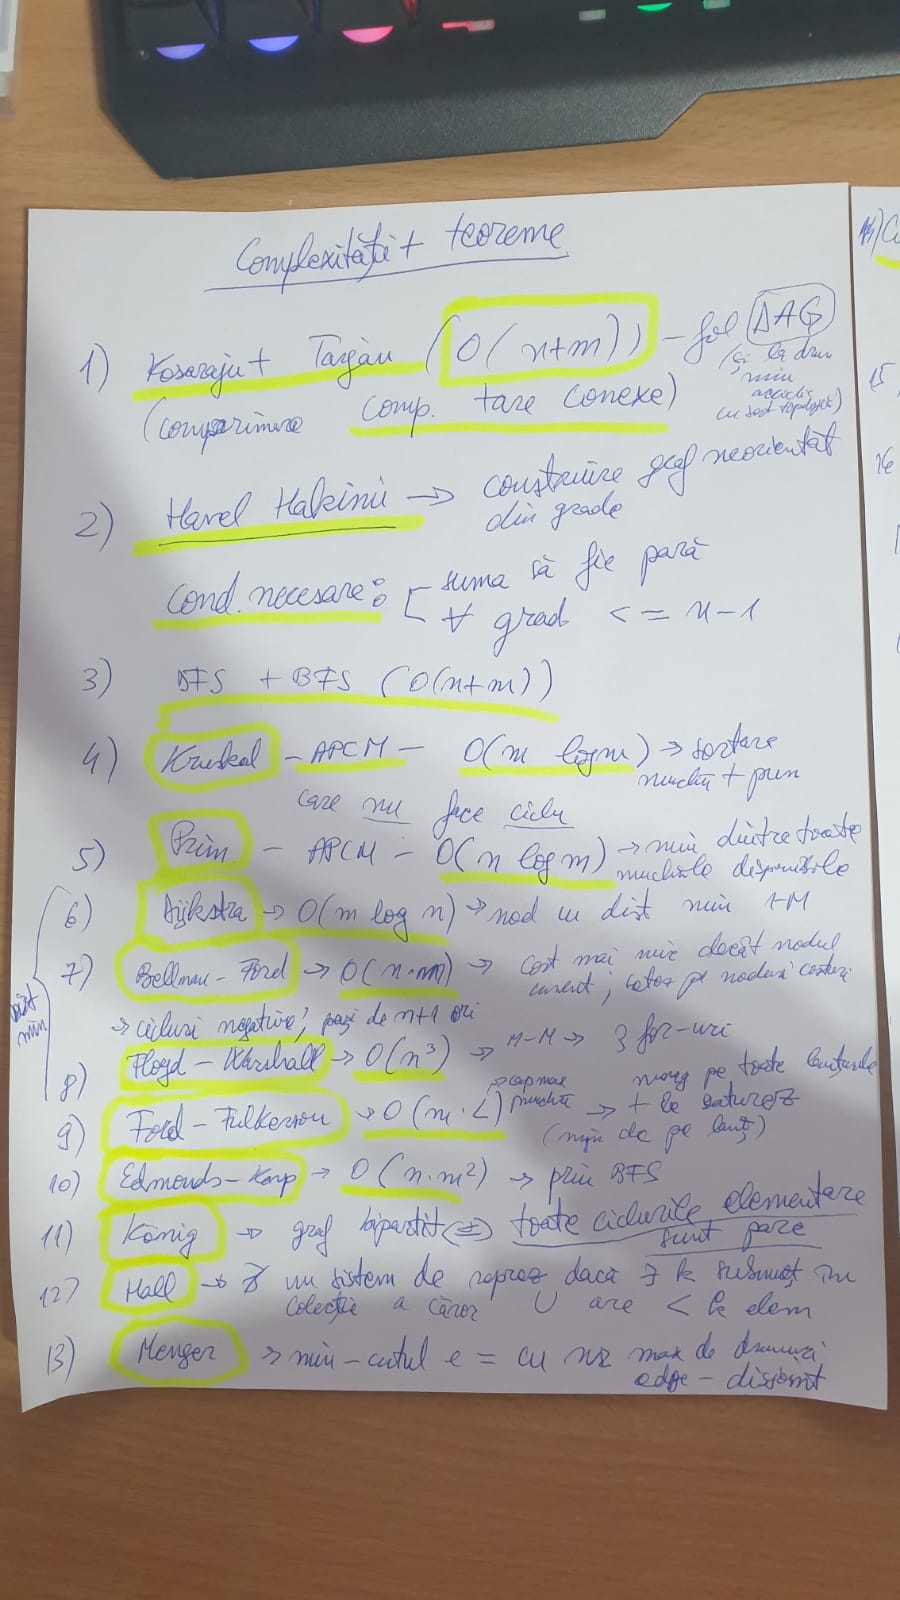 Complexități + teoreme
1) Kosaraju + Tarjan (O(n+m)) - fol DAG
(și la drum
min
aciclic
cu sort topologică)
(comprimare comp. tare conexe)
2) Havel Hakimi → construire graf neorientat
din grade
Cond. necesare: [ suma să fie pară
∀ grad <= n-1
3) DFS + BFS (O(n+m))
4) Kruskal - APCM - O(m log m) → sortare
muchii + pun
care nu fac ciclu
5) Prim - APCM - O(n log m) → min dintre toate
muchiile disponibile
dist min
6) Dijkstra → O(m log n) → nod cu dist min 1-M
7) Bellman-Ford → O(n·m) → cost mai mic decât nodul
curent;
→ cicluri negative; de n+1 ori
8) Floyd-Warshall → O(n³) → M-M → 3 for-uri
9) Ford-Fulkerson → O(m·L) → cap max
muchie
→ merg pe toate lanțurile
+ le saturez
(min de pe lanț)
10) Edmonds-Karp → O(n·m²) → prin BFS
11) König → graf bipartit (=) toate ciclurile elementare
sunt pare
12) Hall → ∄ un sistem de reprez dacă ∃ k submulț în
colecție a căror ∪ are < k elem
13) Menger → min-cutul e = cu nr max de drumuri
edge-disjoint
15
16